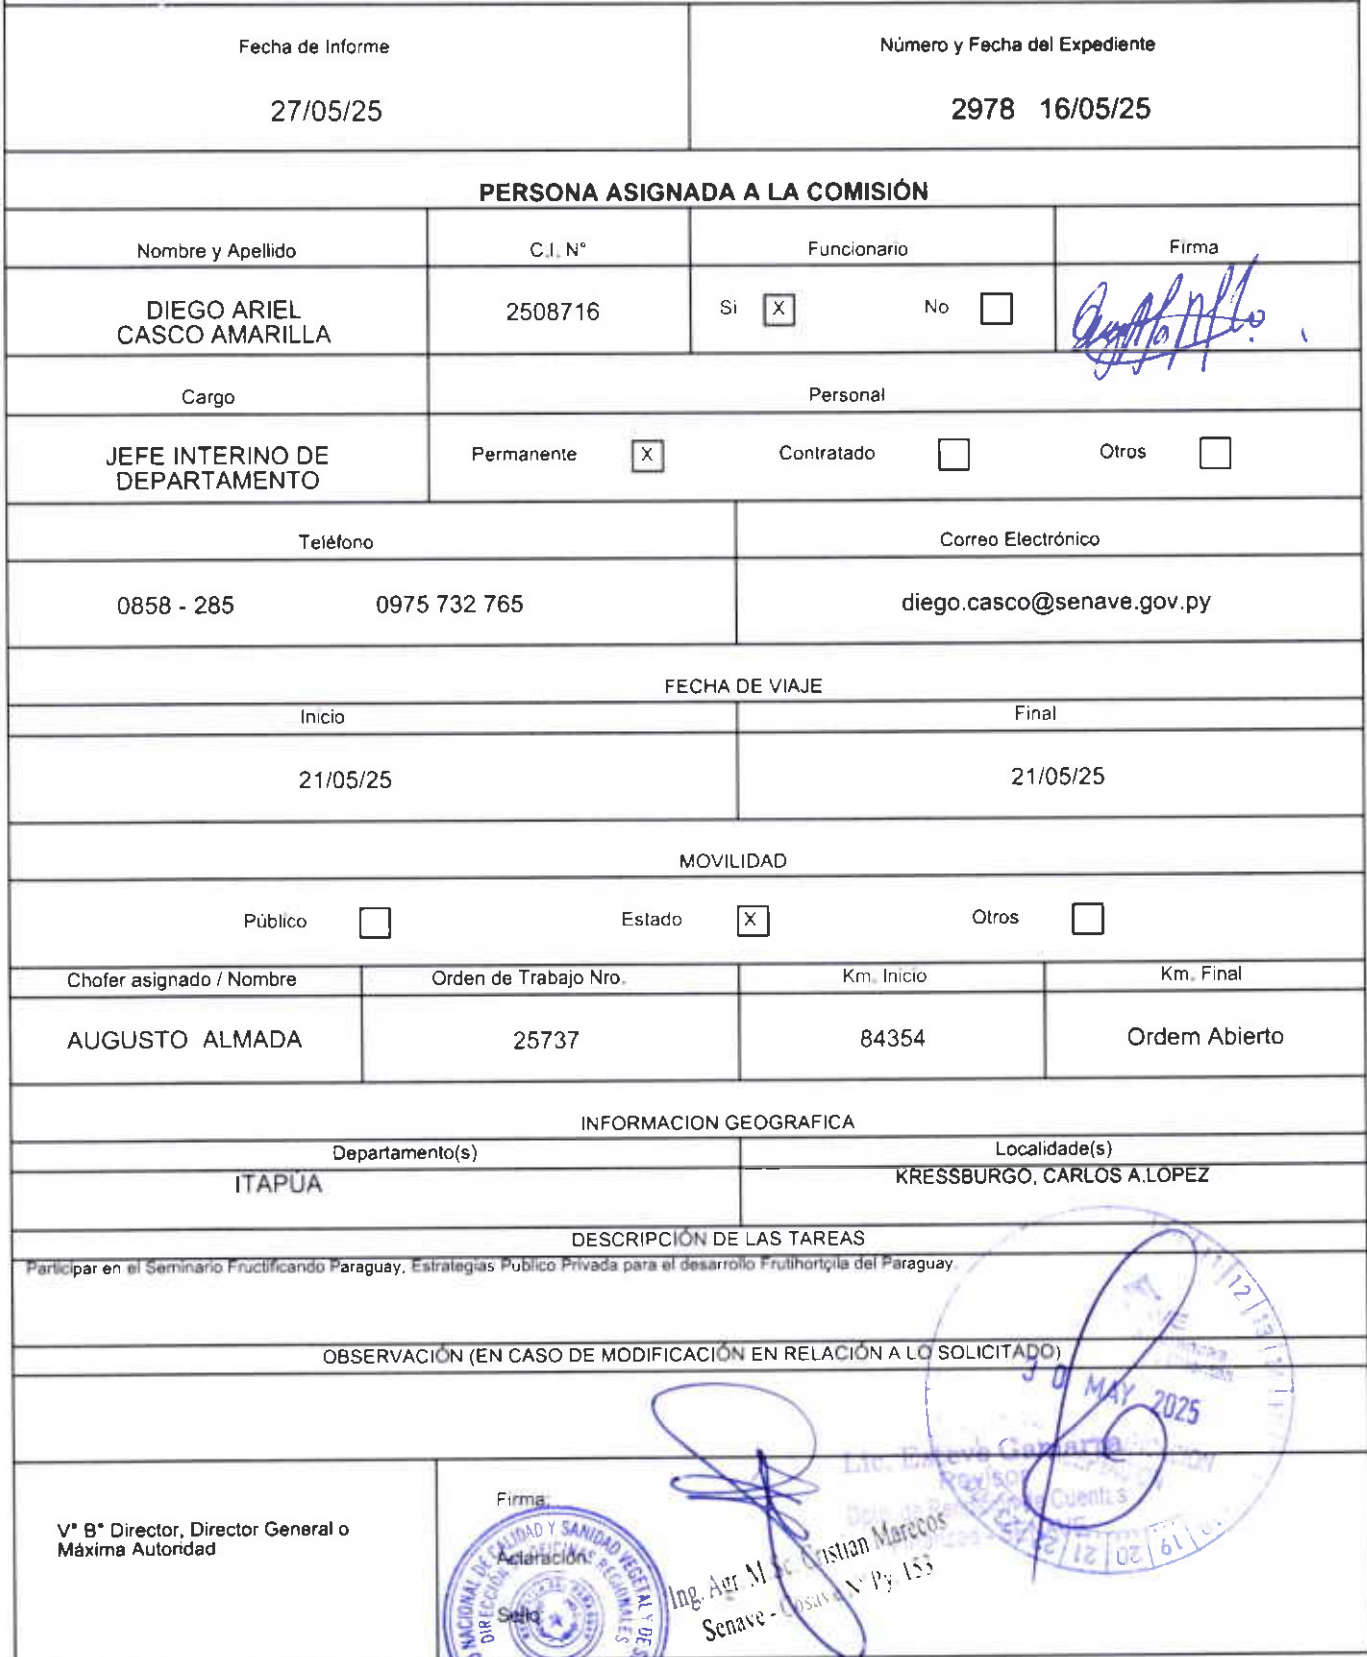 Fecha de Informe
Número y Fecha del Expediente
27/05/25
2978 16/05/25
PERSONA ASIGNADA A LA COMISIÓN
Nombre y Apellido
C.I. N°
Funcionario
Firma
DIEGO ARIEL
CASCO AMARILLA
2508716
Si X
No
Cargo
Personal
JEFE INTERINO DE
DEPARTAMENTO
Permanente X
Contratado
Otros
Teléfono
Correo Electrónico
0858 - 285 0975 732 765
diego.casco@senave.gov.py
FECHA DE VIAJE
Inicio
Final
21/05/25
21/05/25
MOVILIDAD
Público
Estado X
Otros
Chofer asignado / Nombre
Orden de Trabajo Nro.
Km. Inicio
Km. Final
AUGUSTO ALMADA
25737
84354
Ordem Abierto
INFORMACION GEOGRAFICA
Departamento(s)
Localidade(s)
ITAPÚA
KRESSBURGO, CARLOS A.LOPEZ
DESCRIPCIÓN DE LAS TAREAS
Participar en el Seminario Fructificando Paraguay, Estrategias Publico Privada para el desarrollo Frutihortçila del Paraguay.
OBSERVACIÓN (EN CASO DE MODIFICACIÓN EN RELACIÓN A LO SOLICITADO)
30 MAY 2025
Lic. Esteve Gamarra
Revisor
V° B° Director, Director General o
Máxima Autoridad
Firma:
Aclaración:
Sello:
NACIONAL DE CALIDAD Y SANIDAD VEGETAL Y DE
DIRECCIÓN DE OFICINAS REGIONALES
Ing. Agr. M.Sc. Cristian Marecos
Senave - Cosave N° Py. 153